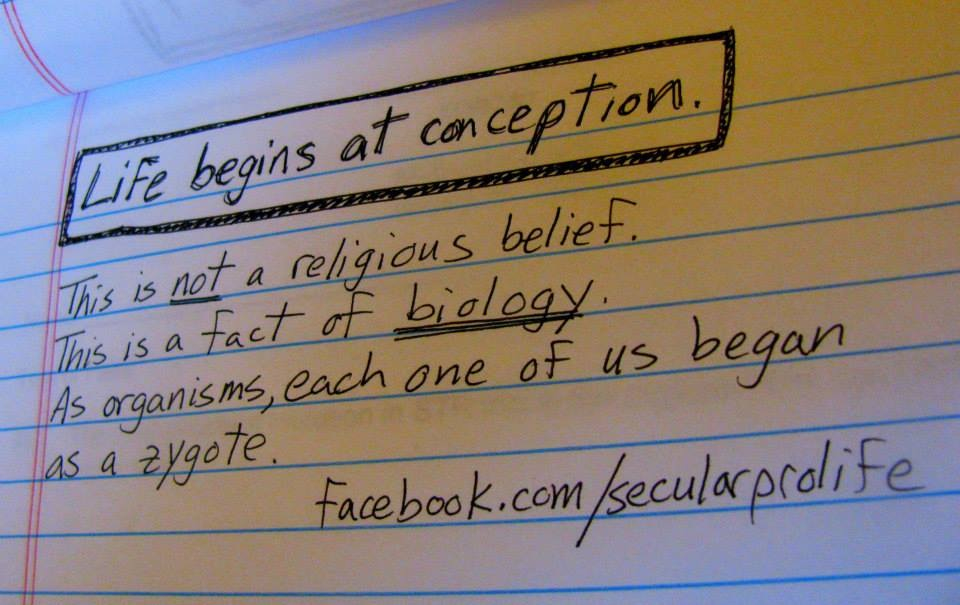 Life begins at conception.
This is not a religious belief.
This is a fact of biology.
As organisms, each one of us began
as a zygote.
facebook.com/secularprolife